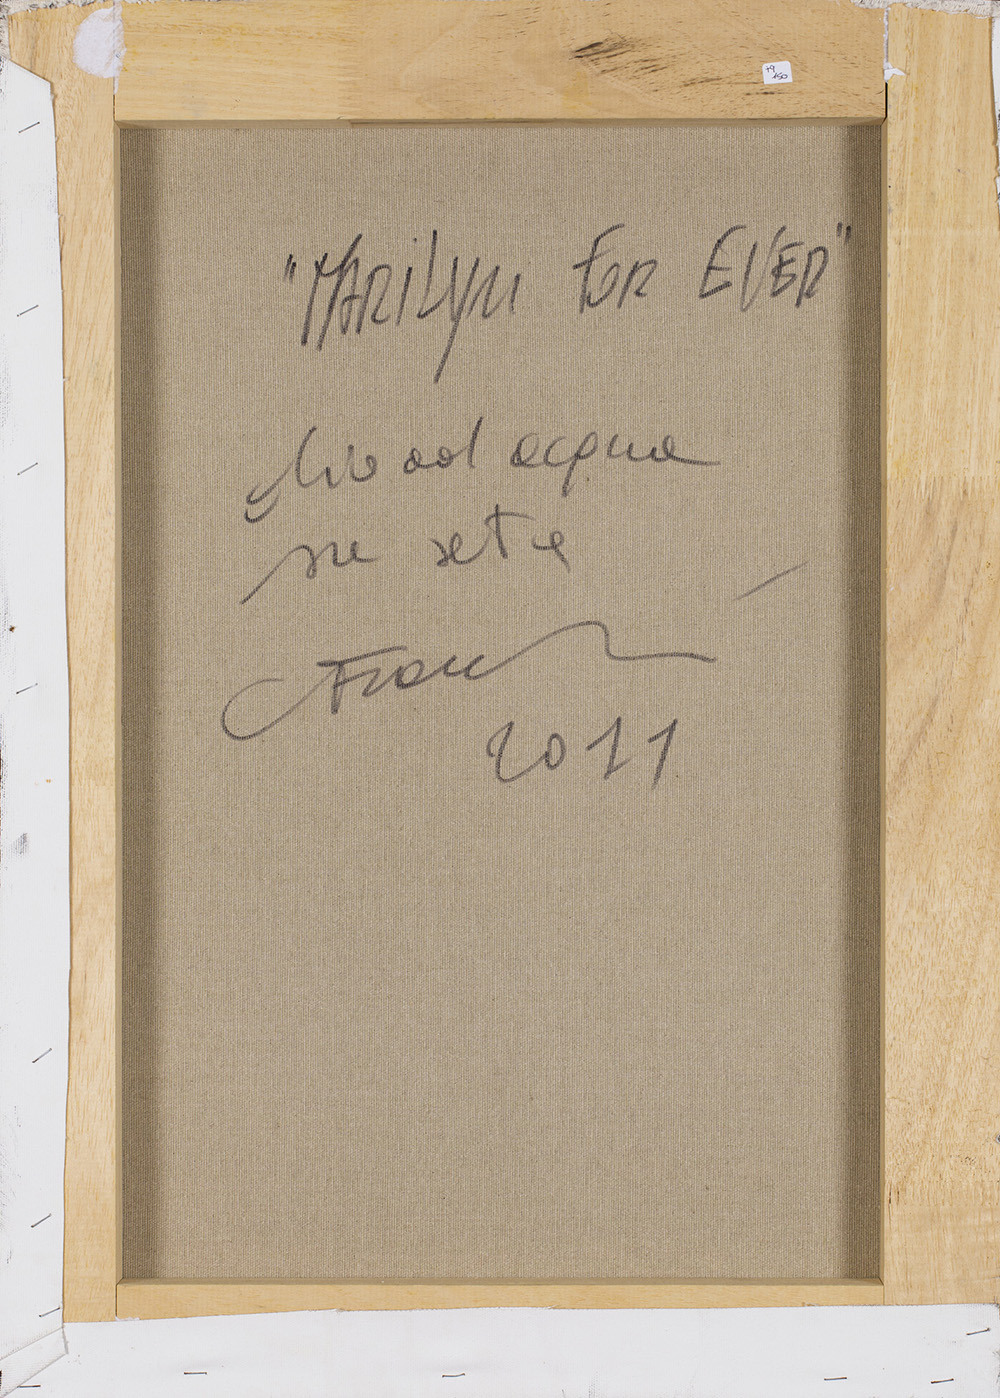 +9
150
"MARiLyn FOR EVER"
olio ad acqua
su seta
2011